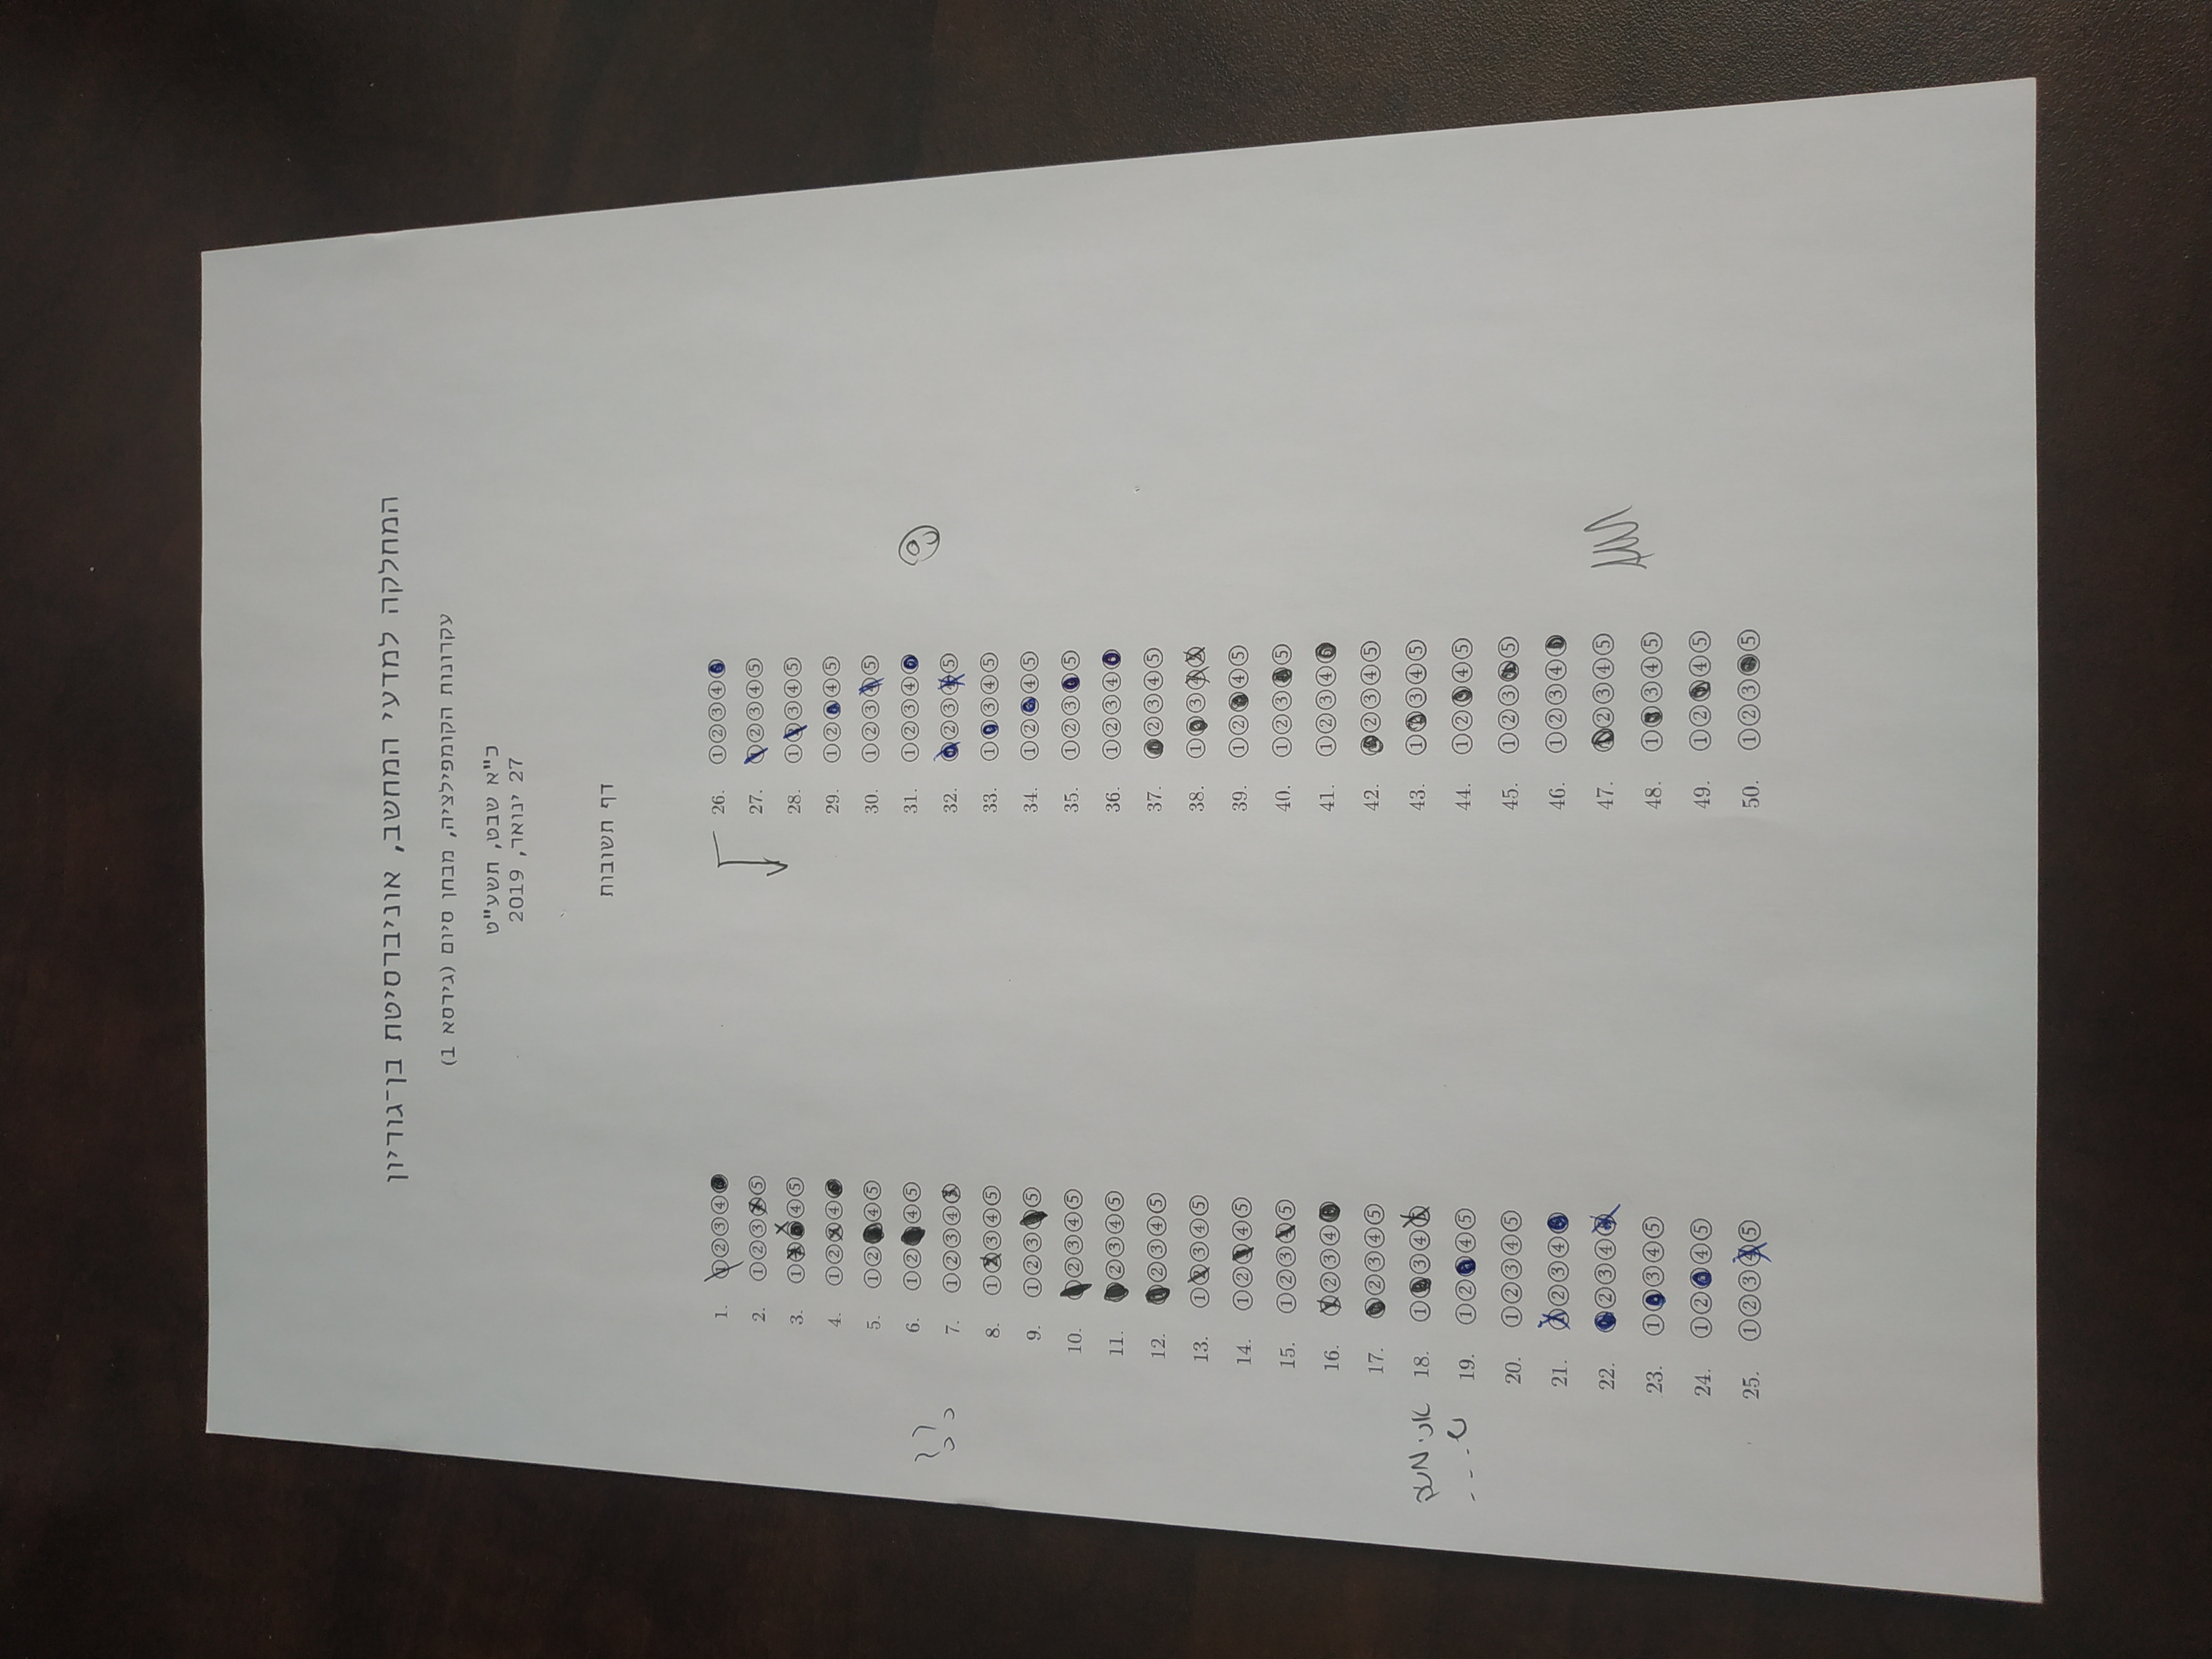 המחלקה למדעי המחשב, אוניברסיטת בן־גוריון
עקרונות הקומפילציה, מבחן סיום (גירסא 1)
כ"א שבט, תשע"ט
27 ינואר, 2019
דף תשובות
1. ① ② ③ ④
2. ① ② ③ ④ ⑤
3. ① ② ④ ⑤
4. ① ② ③ ④
5. ① ② ④ ⑤
6. ① ② ④ ⑤
?? 7. ① ② ③ ④ ⑤
8. ① ② ③ ④ ⑤
9. ① ② ③ ⑤
10. ② ③ ④ ⑤
11. ② ③ ④ ⑤
12. ① ② ③ ④ ⑤
13. ① ② ③ ④ ⑤
14. ① ② ③ ④ ⑤
15. ① ② ③ ④ ⑤
16. ① ② ③ ④
17. ② ③ ④ ⑤
אני 18. ① ② ③ ④ ⑤
ש... 19. ① ② ④ ⑤
20. ① ② ③ ④ ⑤
21. ① ② ③ ④
22. ② ③ ④
23. ① ③ ④ ⑤
24. ① ② ④ ⑤
25. ① ② ③ ④ ⑤
26. ① ② ③ ④
27. ① ② ③ ④ ⑤
28. ① ② ③ ④ ⑤
29. ① ② ④ ⑤
30. ① ② ③ ④ ⑤
31. ① ② ③ ④
32. ② ③ ④ ⑤
33. ① ③ ④ ⑤
34. ① ② ④ ⑤
35. ① ② ③ ⑤
36. ① ② ③ ④
37. ① ② ③ ④ ⑤
38. ① ② ③ ④ ⑤
39. ① ② ④ ⑤
40. ① ② ③ ④ ⑤
41. ① ② ③ ④ ⑤
42. ② ③ ④ ⑤
43. ① ② ③ ④ ⑤
44. ① ② ③ ④ ⑤
45. ① ② ③ ⑤
46. ① ② ③ ④ ⑤
47. ① ② ③ ④ ⑤
48. ① ③ ④ ⑤
49. ① ② ③ ④ ⑤
50. ① ② ③ ⑤